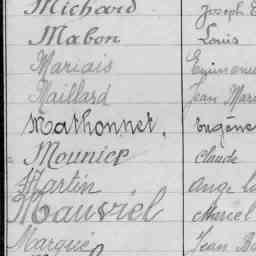 Michard Joseph
Mabon Louis
Mariais
Maillard Jean
Mathonnet, Eugène
Mounier Claude
Martin Ange
Mauviel Marcel
Marquié Jean